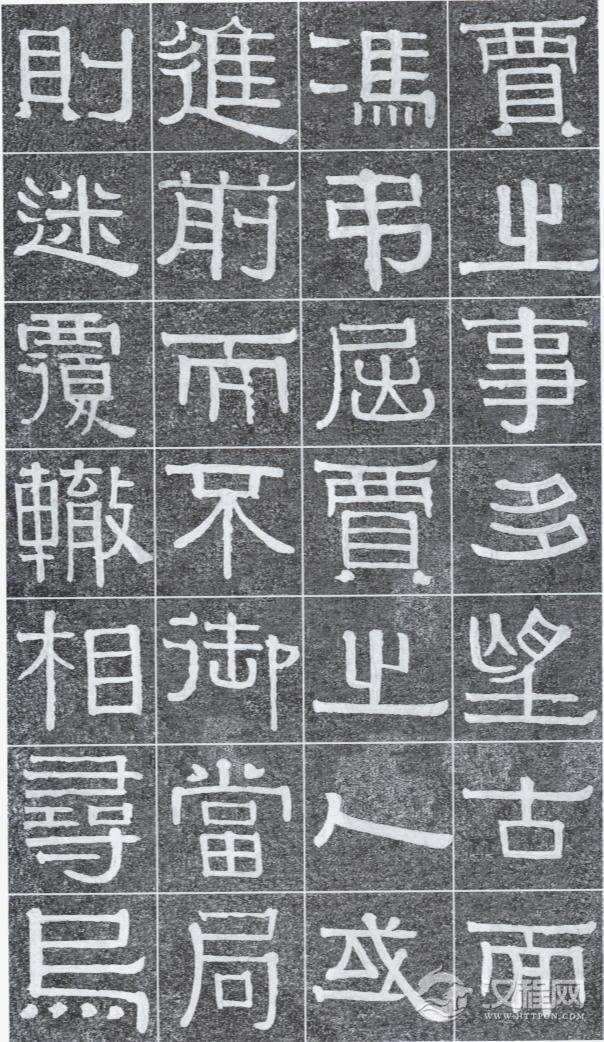 賈之事多望古而
馮弔屈賈之人或
進前而不御當局
則迷覆轍相尋烏
汉程网
WWW.HTTPCN.COM